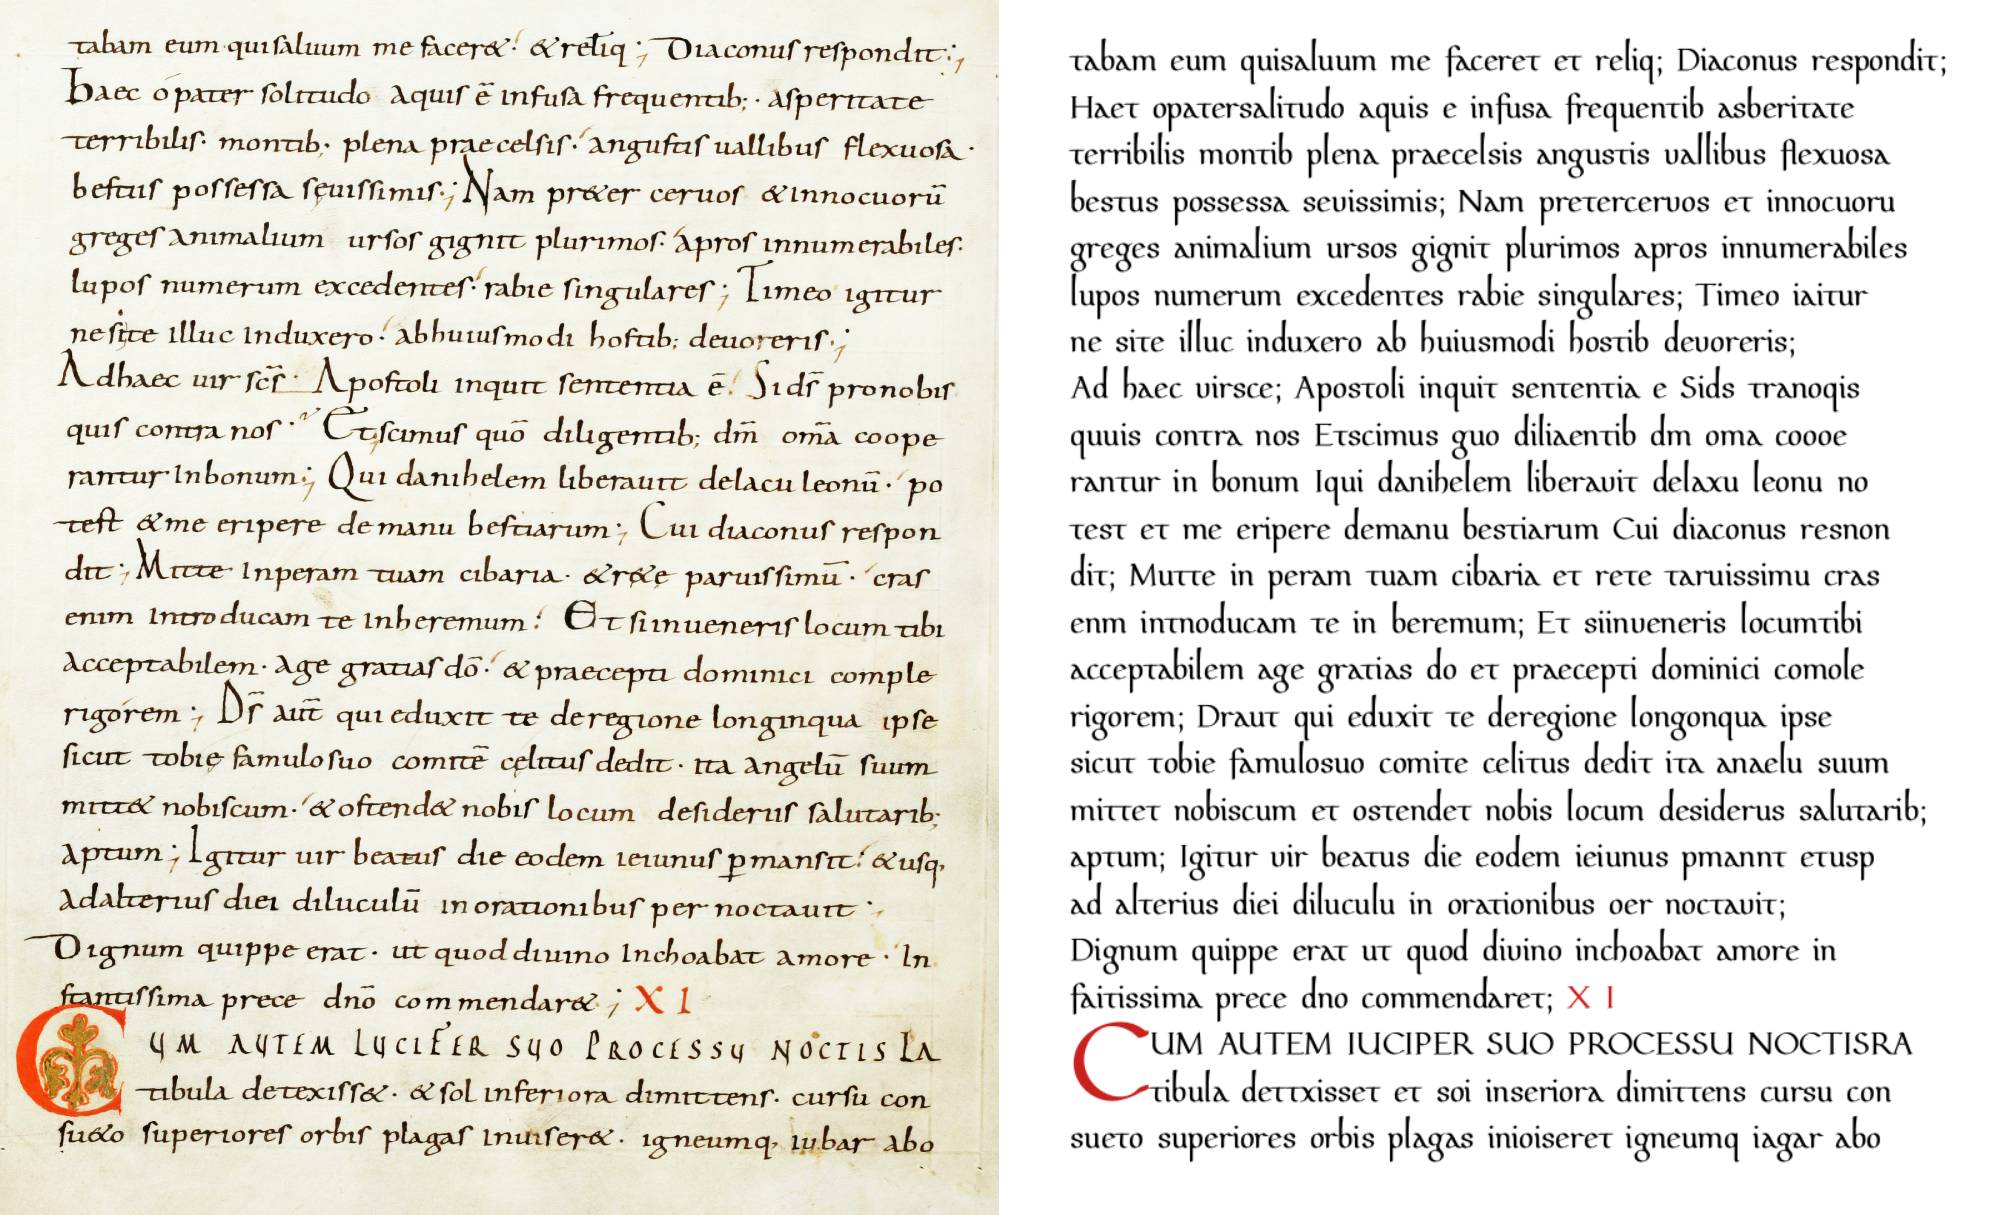 tabam eum quisaluum me facer&. & reliq; Diaconus respondit;
Haec o pater solitudo aquis ē infusa frequentib; asperitate
terribilis. montib; plena praecelsis. angustis uallibus flexuosa.
bestiis possessa sęuissimis; Nam pr&er ceruos & innocuorū
greges animalium ursos gignit plurimos. apros innumerabiles.
lupos numerum excedentes. rabie singulares; Timeo igitur
ne si te illuc induxero. abhuiusmodi hostib; deuoreris;
Adhaec uir scs̄. Apostoli inquit sententia ē. Si ds̄ pronobis
quis contra nos. Et scimus quō diligentib; dm̄ omā coope
rantur inbonum; Qui danihelem liberauit delacu leonū. po
test & me eripere demanu bestiarum; Cui diaconus respon
dit; Mitte inperam tuam cibaria. & r&ę paruissimū. cras
enim introducam te inheremum. Et si inueneris locum tibi
acceptabilem. age gratias dō. & praecepti dominici comple
rigorem; Ds̄ aut̄ qui eduxit te deregione longinqua ipse
sicut tobię famulo suo comitē cęlitus dedit. ita angelū suum
mitt& nobiscum. & ostend& nobis locum desideriis salutarib;
aptum; Igitur uir beatus die eodem ieiunus ꝑmansit. & usq,
adalterius diei diluculū inorationibus per noctauit.
Dignum quippe erat. ut quod diuino inchoabat amore. In
stantissima prece dnō commendar&; XI
CUM AUTEM LUCIFER SUO PROCESSU NOCTIS LA
tibula detexiss&. & sol inferiora dimittens. cursu con
su&o superiores orbis plagas inuiser&. igneumq, iubar abo
tabam eum quisaluum me faceret et reliq; Diaconus respondit;
Haet opatersalitudo aquis e infusa frequentib asberitate
terribilis montib plena praecelsis angustis uallibus flexuosa
bestus possessa seuissimis; Nam pretercervos et innocuoru
greges animalium ursos gignit plurimos apros innumerabiles
lupos numerum excedentes rabie singulares; Timeo iaitur
ne site illuc induxero ab huiusmodi hostib devoreris;
Ad haec virsce; Apostoli inquit sententia e Sids tranoqis
quuis contra nos Etscimus guo diliaentib dm oma coooe
rantur in bonum Iqui danihelem liberavit delaxu leonu no
test et me eripere demanu bestiarum Cui diaconus resnon
dit; Mutte in peram tuam cibaria et rete taruissimu cras
enm intnoducam te in beremum; Et siinveneris locumtibi
acceptabilem age gratias do et praecepti dominici comole
rigorem; Draut qui eduxit te deregione longonqua ipse
sicut tobie famulosuo comite celitus dedit ita anaelu suum
mittet nobiscum et ostendet nobis locum desiderus salutarib;
aptum; Igitur vir beatus die eodem ieiunus pmannt etusp
ad alterius diei diluculu in orationibus oer noctavit;
Dignum quippe erat ut quod divino inchoabat amore in
faitissima prece dno commendaret; X I
CUM AUTEM IUCIPER SUO PROCESSU NOCTISRA
tibula dettxisset et soi inseriora dimittens cursu con
sueto superiores orbis plagas inioiseret igneumq iagar abo